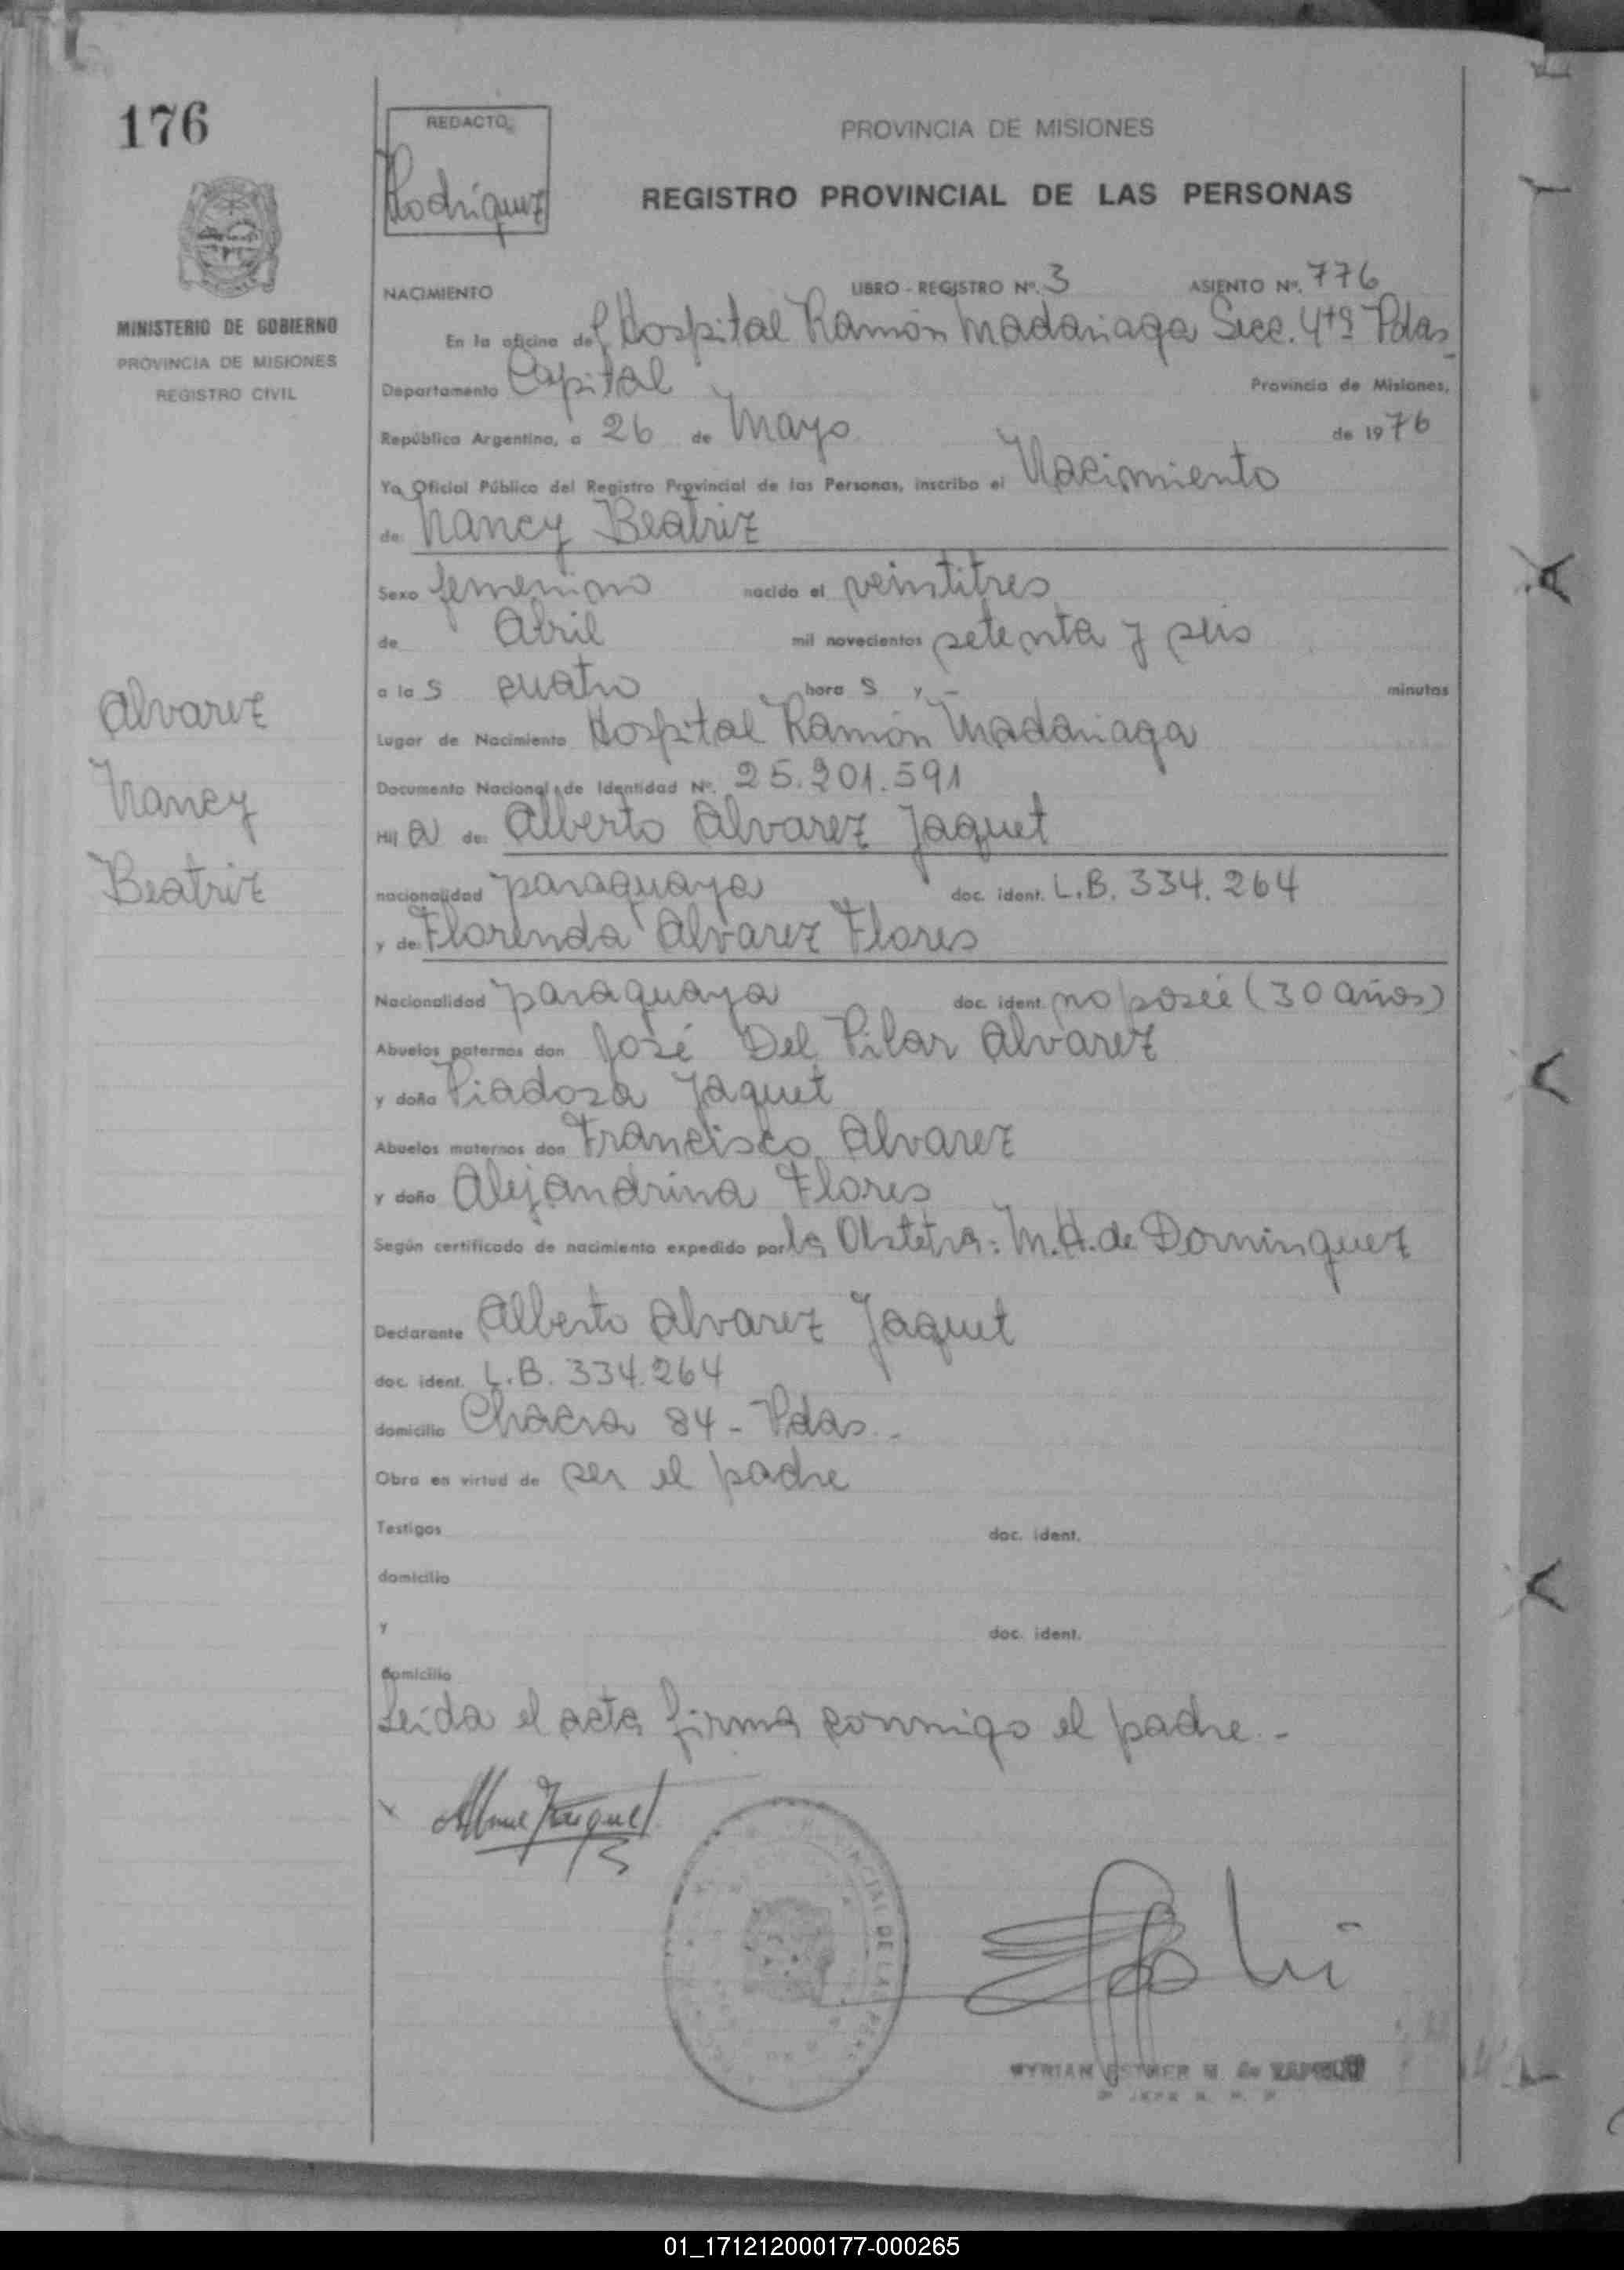 176
REDACTO
Rodriguez
PROVINCIA DE MISIONES
REGISTRO PROVINCIAL DE LAS PERSONAS
MINISTERIO DE GOBIERNO
PROVINCIA DE MISIONES
REGISTRO CIVIL
NACIMIENTO LIBRO - REGISTRO Nº. 3 ASIENTO Nº. 776
En la oficina del Hospital Ramón Madariaga Secc. 4ta Pdas
Departamento Capital Provincia de Misiones,
República Argentina, a 26 de Mayo de 1976
Yo, Oficial Público del Registro Provincial de las Personas, inscribo el Nacimiento
de: Nancy Beatriz
Sexo femenino nacido el veintitres
de Abril mil novecientos setenta y seis
a las cuatro horas y - minutos
Lugar de Nacimiento Hospital Ramón Madariaga
Documento Nacional de Identidad Nº. 25.201.591
Hija de: Alberto Alvarez Jaquet
nacionalidad paraguaya doc. ident. L.B. 334.264
y de: Florenda Alvarez Flores
Nacionalidad paraguaya doc. ident. no posee (30 años)
Abuelos paternos don José Del Pilar Alvarez
y doña Piadosa Jaquet
Abuelos maternos don Francisco Alvarez
y doña Alejandrina Flores
Según certificado de nacimiento expedido por la Obstetra: M.H. de Dominguez
Declarante Alberto Alvarez Jaquet
doc. ident. L.B. 334.264
domicilio Chacra 84 - Pdas.-
Obra en virtud de ser el padre
Testigos doc. ident.
domicilio
y doc. ident.
domicilio
Leida el acta firma conmigo el padre.-
Alvarez
Nancy
Beatriz
DE LAS
MYRIAN ESTHER M. de
01_171212000177-000265